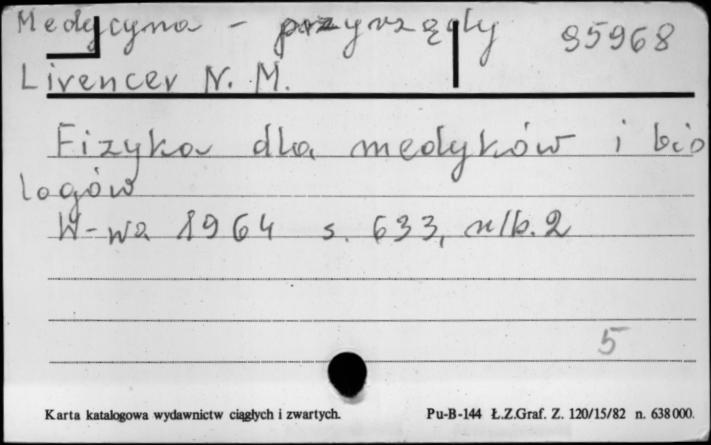 Medycyna - przyrządy 95968
Livencer N. M.
Fizyka dla medyków i bio
logów
W-wa 1964 s. 633, nlb. 2
5
Karta katalogowa wydawnictw ciągłych i zwartych. Pu-B-144 Ł.Z.Graf. Z. 120/15/82 n. 638000.